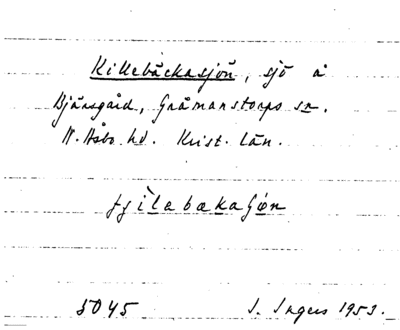 Killebäckasjön, sjö å
Bjärsgård, Gråmanstorps sn.
N. Åsbo hd. Krist. län.
5045 I. Ingers 1953.